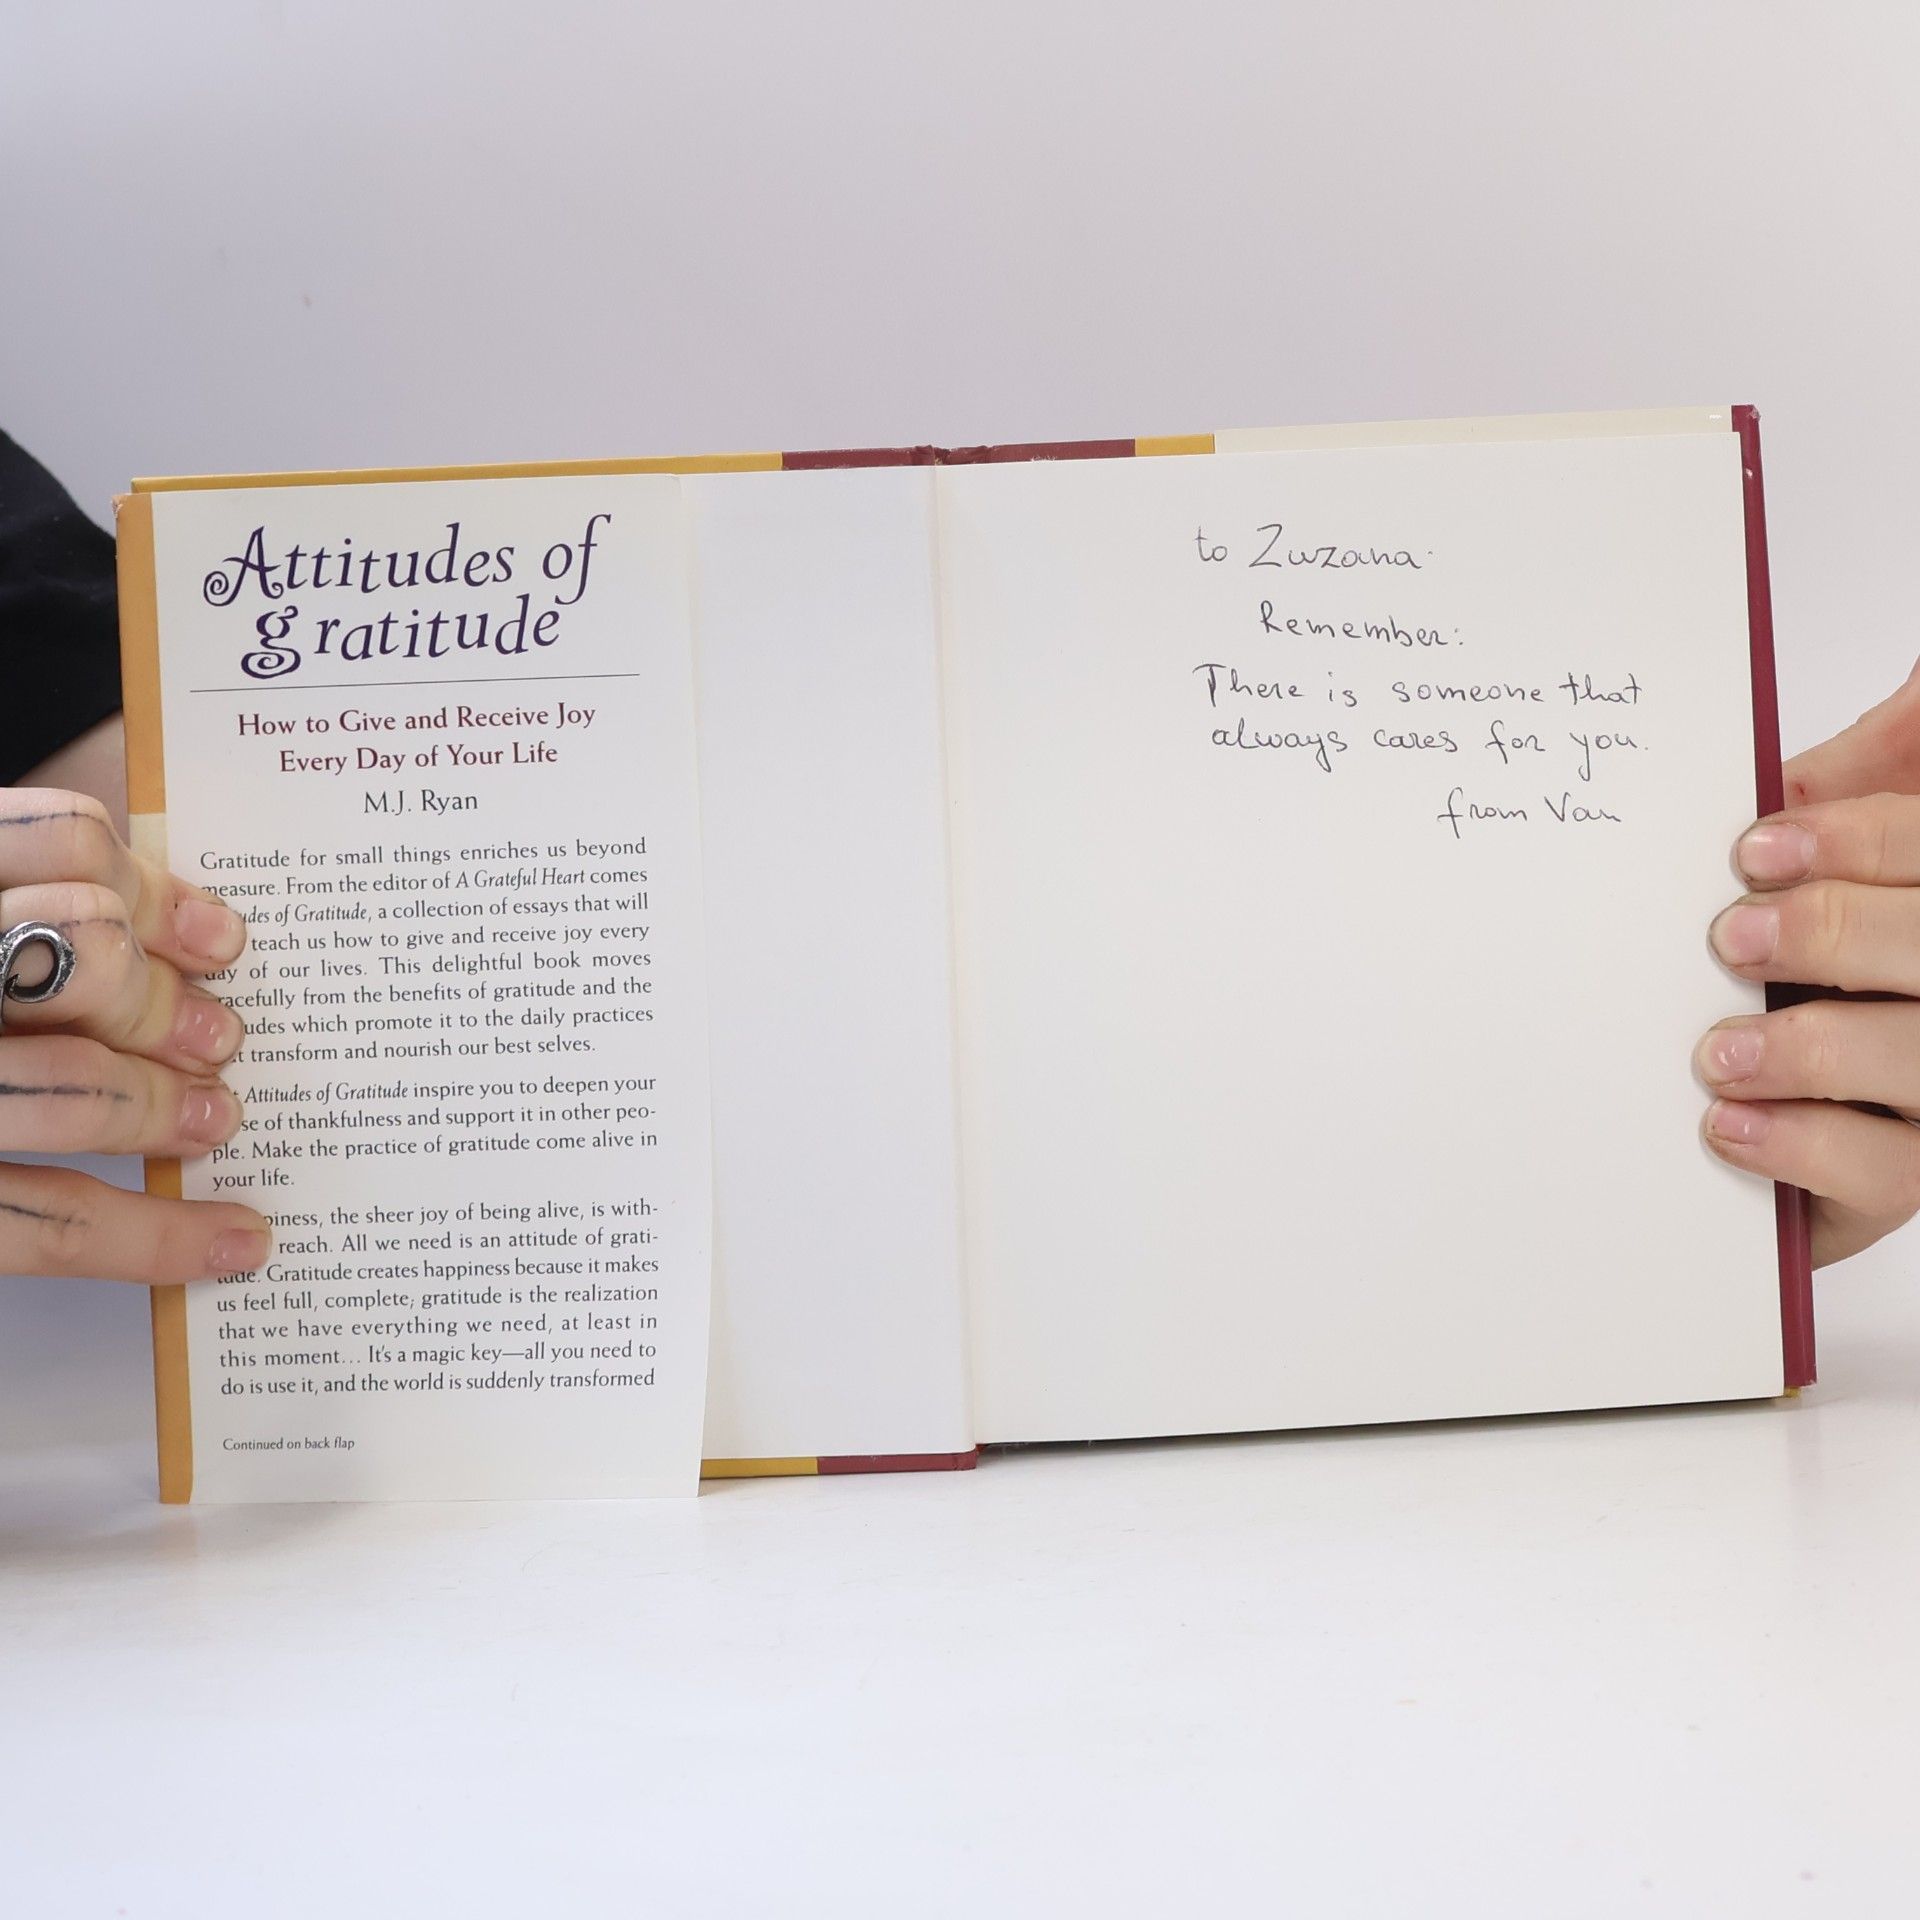 Attitudes of
gratitude
How to Give and Receive Joy
Every Day of Your Life
M.J. Ryan
Gratitude for small things enriches us beyond
measure. From the editor of A Grateful Heart comes
of Gratitude, a collection of essays that will
teach us how to give and receive joy every
day of our lives. This delightful book moves
from the benefits of gratitude and the
which promote it to the daily practices
transform and nourish our best selves.
Attitudes of Gratitude inspire you to deepen your
of thankfulness and support it in other peo-
ple. Make the practice of gratitude come alive in
your life.
the sheer joy of being alive, is with-
reach. All we need is an attitude of grati-
tude. Gratitude creates happiness because it makes
us feel full, complete; gratitude is the realization
that we have everything we need, at least in
this moment... It's a magic key—all you need to
do is use it, and the world is suddenly transformed
Continued on back flap
to Zuzana.
Remember:
There is someone that
always cares for you.
from Van